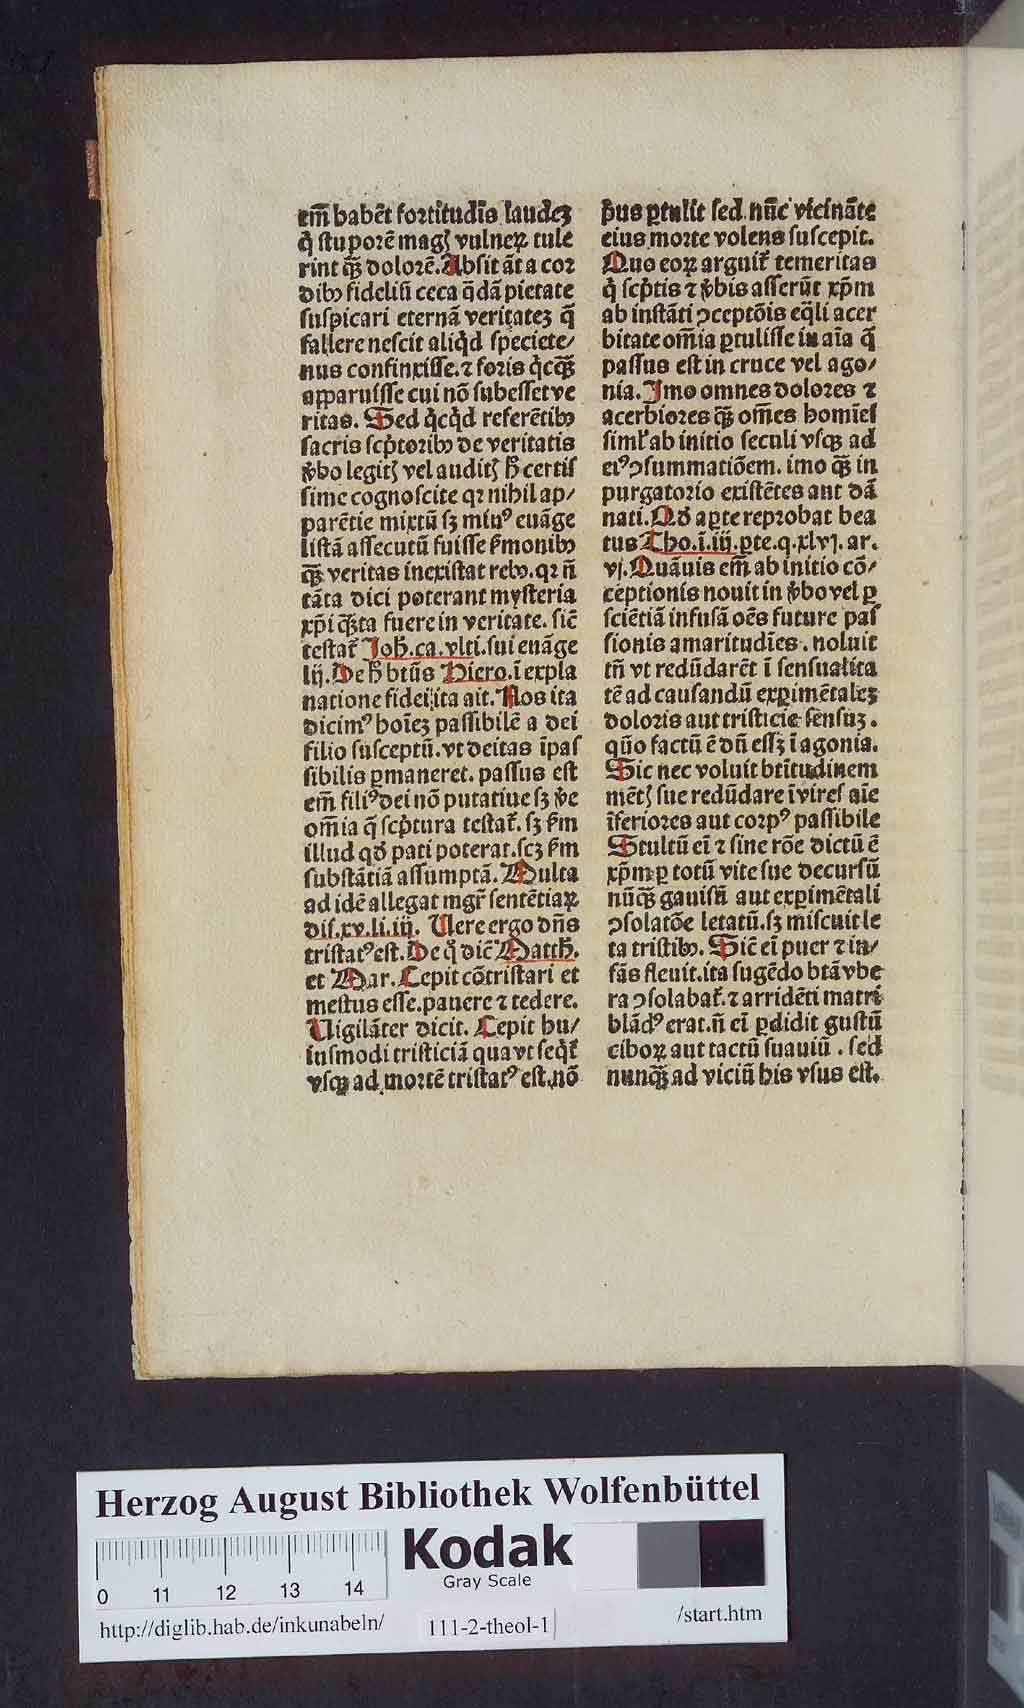 em̄ habēt fortitudīs laudeꝫ
q̇ stuporē magꝭ vulneꝝ tule
rint qꝫ̄ dolorē. Absit āt a cor
dibꝰ fideliū ceca q̄dā pietate
suspicari eternā veritateꝫ q̄
fallere nescit aliq̇d speciete⸗
nus confinxisse. ⁊ foris q̇cqꝫ̄
apparuisse cui nō subesset ve
ritas. Sed q̇cq̇d referētibꝰ
sacris scp̄toribꝰ de veritatis
v̾bo legitꝭ vel auditꝭ h̄ certis
sime cognoscite qꝛ nihil ap⸗
parētie mixtū sꝫ minꝰ euāge
listā assecutū fuisse ẜmonibꝰ
qꝫ̄ veritas inexistat rebꝰ. qꝛ n̄
tāta dici poterant mysteria
xp̄i qꝫ̄ta fuere in veritate. sic̄
testat᷑ Joh̄. ca. vlti. sui euāge
lij. De h̄ btūs Hiero. ī expla
natione fidei ita ait. Nos ita
dicimꝰ hoīeꝫ passibilē a dei
filio susceptū. vt deitas īpas
sibilis ꝑmaneret. passus est
em̄ filiꝰ dei nō putatiue sꝫ v̾e
om̄ia q̄ scp̄tura testat᷑. sꝫ ẜm
illud qd̄ pati poterat. scꝫ ẜm
substātiā assumptā. Multa
ad idē allegat mgr̄ sentētiaꝝ
dis. xv. li. iij. Vere ergo dn̄s
tristatꝰ est. De q̊ dic̄ Matth̄.
et Mar. Cepit cōtristari et
mestus esse. pauere ⁊ tedere.
Vigilāter dicit. Cepit hu⸗
iusmodi tristiciā qua vt seq̇t᷑
vsqꝫ ad mortē tristatꝰ est. nō
p̾us ꝑtulit sed nūc vicināte
eius morte volens suscepit.
Quo eoꝝ arguit᷑ temeritas
q̇ scp̄tis ⁊ v̾bis asserūt xp̄m
ab instāti ꝯceptōis eq̄li acer
bitate om̄ia ꝑtulisse in aīa q̄
passus est in cruce vel ago⸗
nia. Imo omnes dolores ⁊
acerbiores qꝫ̄ om̄es homīes
simĺ ab initio seculi vsqꝫ ad
eiꝰ ꝯsummatiōem. imo qꝫ̄ in
purgatorio existētes aut dā
nati. Qd̄ aꝑte reprobat bea
tus Tho. ī. iij. ꝑte. q. xlvj. ar.
vj. Quāuis em̄ ab initio cō⸗
ceptionis nouit in v̾bo vel ꝑ
sciētiā infusā oēs future pas
sionis amaritudīes. noluit
tn̄ vt redūdarēt ī sensualita
tē ad causandū exꝑimētaleꝫ
doloris aut tristicie sensuꝫ.
qn̄o factū ē dū essꝫ ī agonia.
Sic nec voluit btītudinem
mētꝭ sue redūdare ī vires aīe
īferiores aut corpꝰ passibile
Stultū eī ⁊ sine rōe dictū ē
xp̄m ꝑ totū vite sue decursū
nūqꝫ̄ gauisū aut exꝑimētali
ꝯsolatōe letatū. sꝫ miscuit le
ta tristibꝰ. Sic̄ eī puer ⁊ in⸗
fās fleuit. ita sugēdo btā vbe
ra ꝯsolabat᷑. ⁊ arridēti matri
blādꝰ erat. n̄ eī ꝑdidit gustū
ciboꝝ aut tactū suauiū. sed
nunqꝫ̄ ad viciū his vsus est.
Herzog August Bibliothek Wolfenbüttel
Kodak
Gray Scale
0 11 12 13 14
http://diglib.hab.de/inkunabeln/
111-2-theol-1
/start.htm